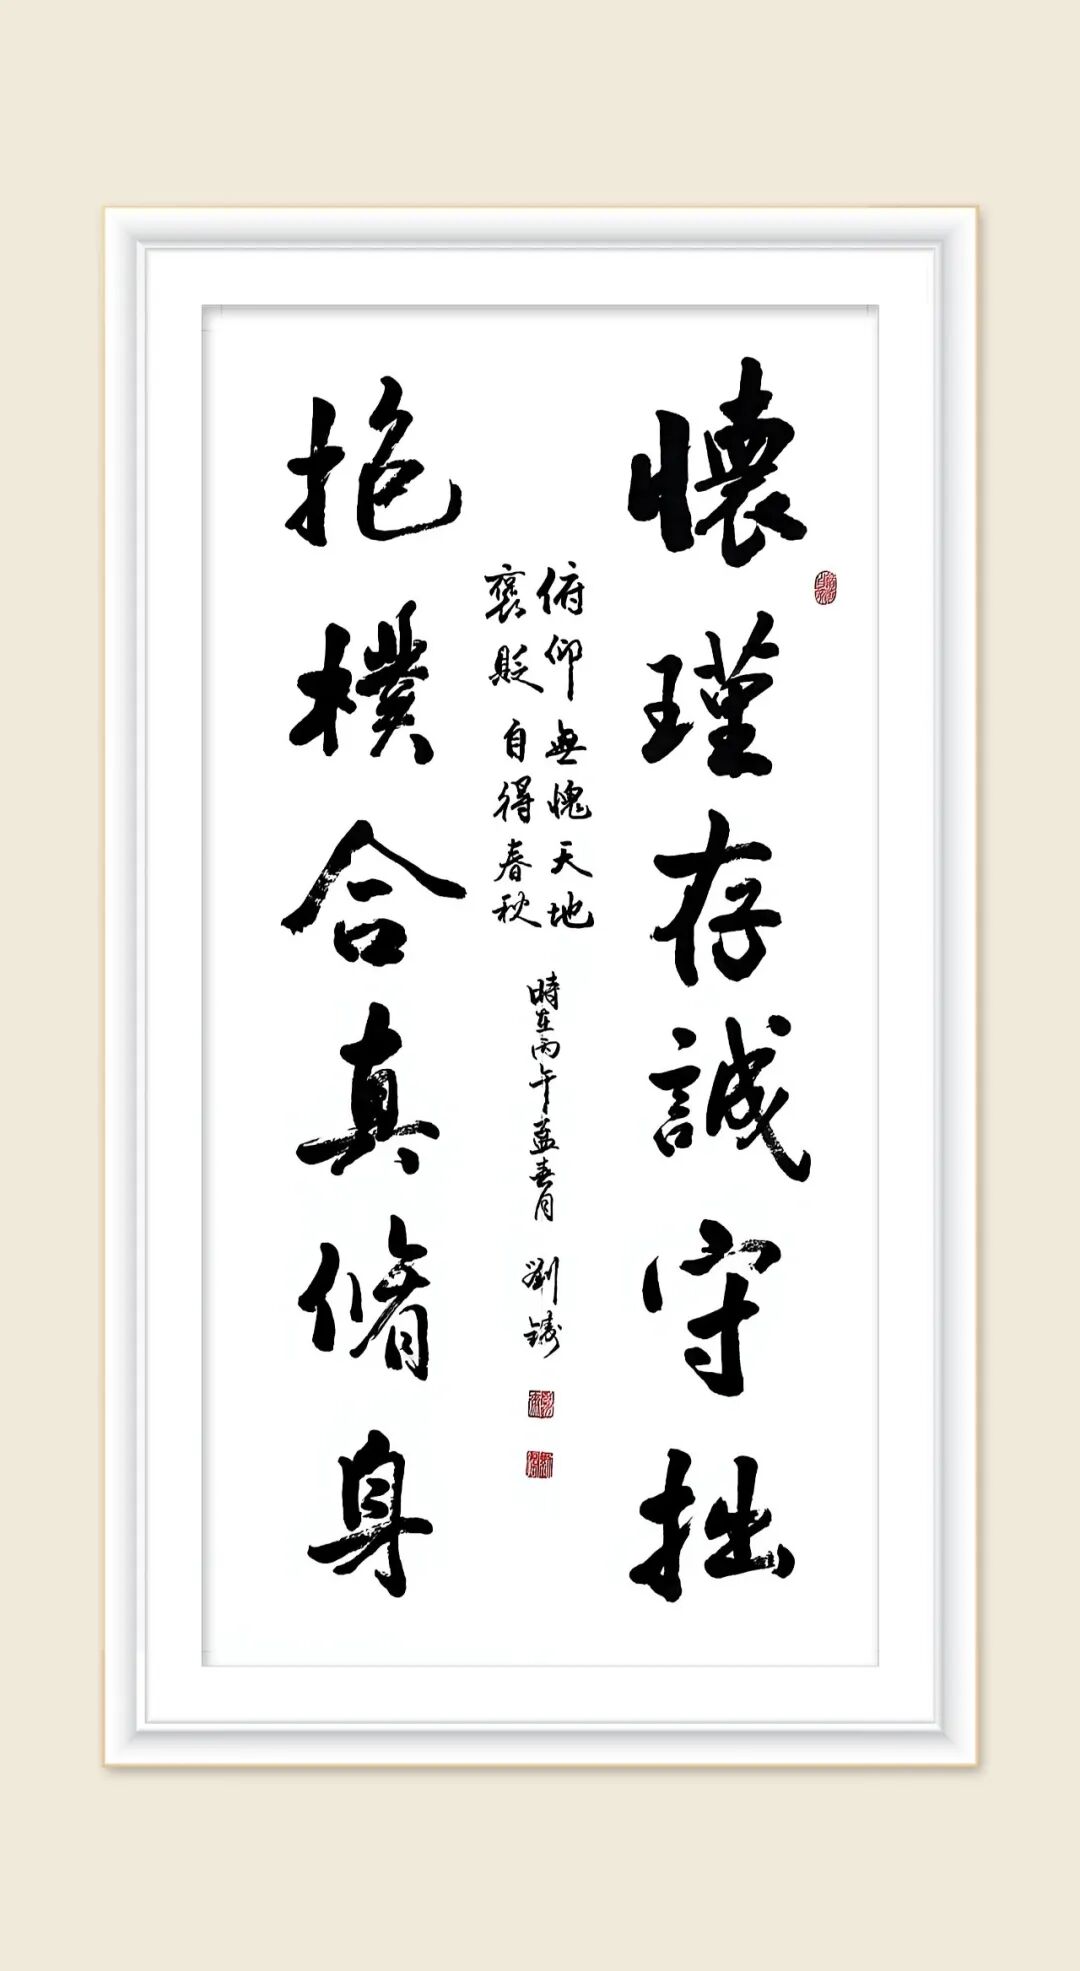 懷瑾存誠守拙
抱樸合真脩身
俯仰無愧天地
褒貶自得春秋
時在丙午孟春月 劉鑄